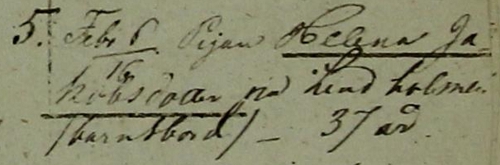 5. Febr 6 Pigan Helena Ja-
16
kobsdotter på Lindholmen
/barnsbörd/ _ 37 år.